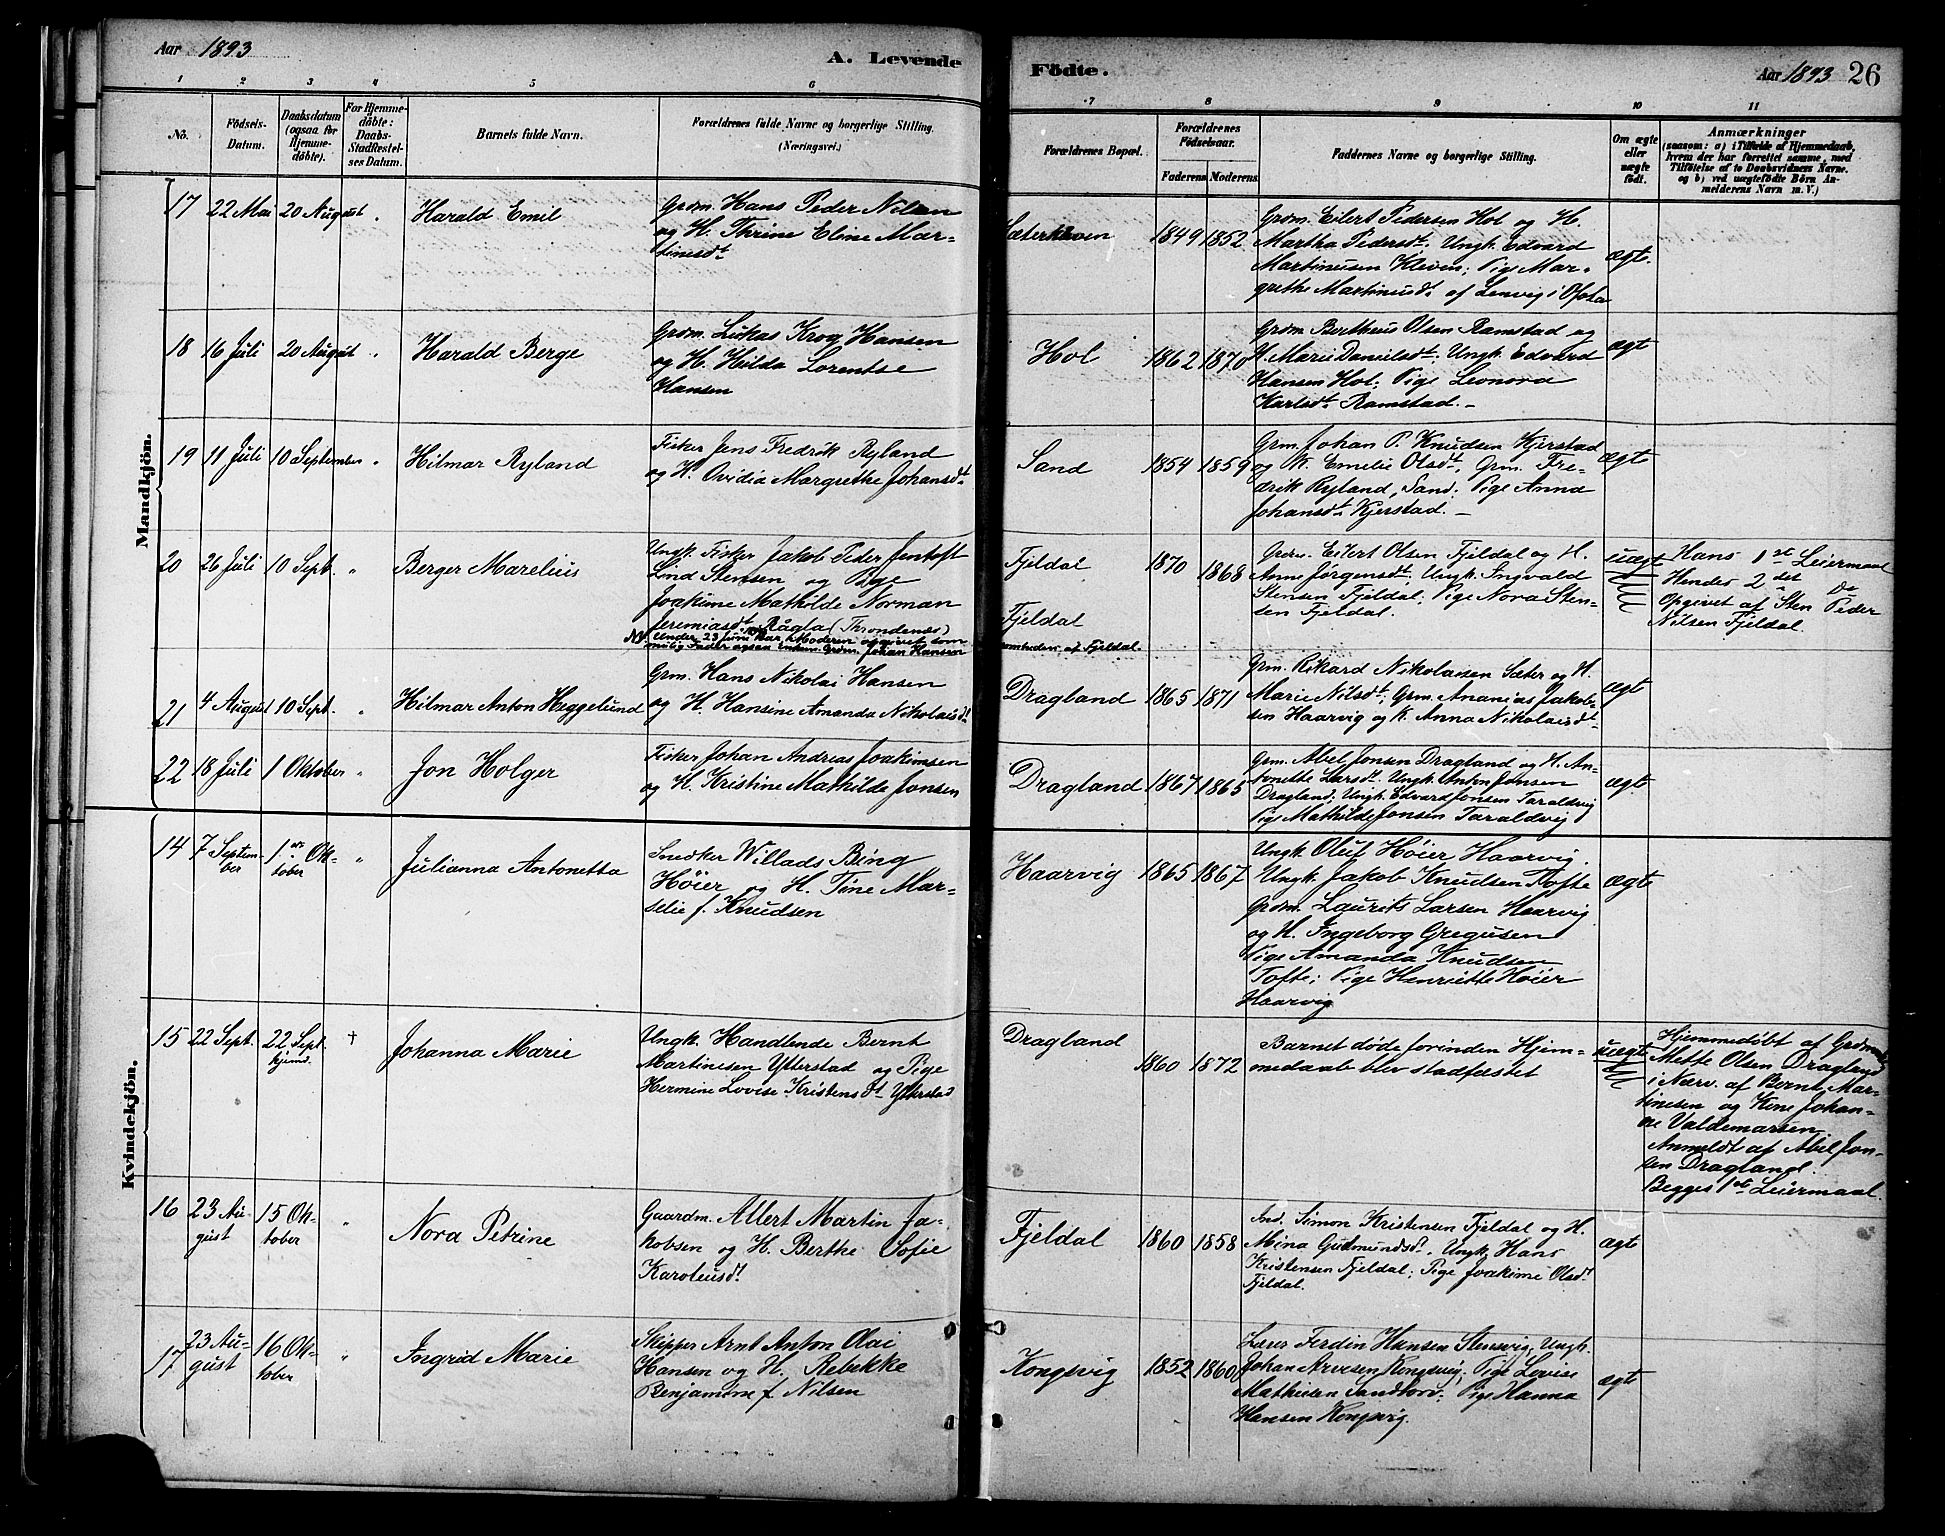 Aar 1893
A. Levende
Födte.
Aar 1893
26
1 2 3 4 5 6 7 8 9 10 11
No.
Födsels-
Datum.
Daabsdatum
(ogsaa for
Hjemme-
döbte).
For Hjemme-
döbte:
Daabs-
Stadfæstel-
ses Datum.
Barnets fulde Navn.
Forældrenes fulde Navne og borgerlige Stilling.
(Næringsvei.)
Forældrenes Bopæl.
Forældrenes
Födselsaar.
Faderens Moderens
Faddernes Navne og borgerlige Stilling.
Om ægte
eller
uægte
födt.
Anmærkninger
(saasom: a) i Tilfælde af Hjemmedaab,
hvem der har forrettet samme, med
Tilföielse af to Daabsvidners Navne.
og b) ved uægtefödte Börn An-
melderens Navn m. V.)
Mandkjön.
17 22 Mai 20 August " Harald Emil
Grdm. Hans Peder Nilsen
og H. Thrine Eline Mar-
tinisdt
1849 1852
Grdm. Eilert Pedersen Hol og H.
Martha Pedersdt. Ungk. Edvard
Martinusen Kleven; Pige Mar-
grethe Martinusdt. af Lenvig i Ofoten
ægte.
18 16 Juli 20 August " Harald Berge
Grdm. Lukas Krog Hansen
og H. Hilda Lorentse
Hansen
Hol 1862 1870
Grdm. Bertheus Olsen Ramstad og
H. Marie Danielsdt; Ungk. Edvard
Hansen Hol; Pige Leonora
Karlsdt. Ramstad. –
ægt
19 11 Juli 10 September " Hilmar Ryland
Fisker Jens Fredrik Ryland
og H. Ovidia Margrethe Johansdt
Sand 1854 1859
Grm. Johan P. Knudsen Kjerstad
og K. Emelie Olsdt, Grm. Fre-
drik Ryland, Sand. Pige Anna
Johansdt Kjerstad. –
ægte
20 26 Juli 10 Sept. " Berger Marelius
Ungk. Fisker Jakob Peder Jentoft
Lind Stensen og Pige
Joakime Mathilde Norman
Jeremiasdt Rågla (Throndenes)
Fjeldal 1870 1868
Fjeldal
Grdm. Eilert Olsen Fjeldal og H.
Anne Jørgensdt; Ungk. Ingvald
Stensen Fjeldal; Pige Nora Sten-
sen Fjeldal.
uægte
Hans 1ste Leiermaal
Hendes 2det De
Opgivet af Sten Peder
Nilsen Fjeldal.
NB. Under 23 Juni har Moderen opgivet som
mulig Fader ogsaa Enkem. Grdm. Johan Hansen
af Fjeldal.
21 4 August 10 Sept. " Hilmar Anton Heggelund
Grm. Hans Nikolai Hansen
og H. Hansine Amanda Nikolaisdt
Dragland 1865 1871
Grm. Rikard Nikolaisen Sæter og H.
Marie Nilsdt; Grm. Ananias Jakob-
sen Haarvig og K. Anna Nikolaisdt –
ægt
22 18 Juli 1 Oktober " Jon Holger
Fisker Johan Andreas Joakimsen
og H. Kristine Mathilde Jonsen
Dragland. 1867 1865
Grm. Abel Jonsen Dragland og H. An-
tonette Larsdt. Ungk. Anton Jonsen
Dragland; Ungk. Edvard Jonsen Taraldsvig
Pige Mathilde Jonsen Taraldsvig
ægte
Kvindekjön.
14 7 Septem-
ber
1ste Ok-
tober
" Julianna Antonetta
Snedker Willads Bing
Høier og H. Tine Mar-
selie f. Knudsen
Haarvig 1865 1867
Ungk. Oluf Höier Haarvig.
Ungk. Jakob Knudsen Tofte
Grdm. Laurits Larsen Haarvig
og H. Ingeborg Gregusen
Pige Amanda Knudsen
Tofte; Pige Henriette Höier
Haarvig
ægte
15 22 Sept. 22 Sept.
hjemd.
† Johanna Marie
Ungk. Handlende Bernt
Martinesen Ytterstad og Pige
Hermine Lovise Kristensdt Ytterstad
Dragland
1860 1872
Barnet døde forinden Hjem-
medaab blev stadfæstet
uægte
Hjemmedøbt af Grdmk.
Mette Olsen Dragland
i Nærv. af Bernt Mar-
tinesen og Kone Johan-
ne Valdemarsen.
Anmeldt af Abel Jon-
sen Dragland.
Begges 1ste Leiermaal.
16 23 Au-
gust
15 Ok-
tober
" Nora Petrine
Gaardm. Allert Martin Ja-
kobsen og H. Berthe Sofie
Karoleusdt
Fjeldal 1860 1858
Ind. Simon Kristensen Fjeldal og H.
Mina Gudmundsdt. Ungk. Hans
Kristensen Fjeldal; Pige Joakime Olsdt
Fjeldal.
ægte
17 23 Au-
gust
16 Ok-
tober
" Ingrid Marie
Skipper Arnt Anton Olai
Hansen og H. Rebekke
Benjamine f. Nilsen
Kongsvig 1852 1860
Lærer Ferdin Hansen Stensvig; Ungk.
Johan Arvesen Kongsvig; Pige Lovise
Mathisen Sandtorv; Pige Hanna
Hansen Kongsvig.
ægte